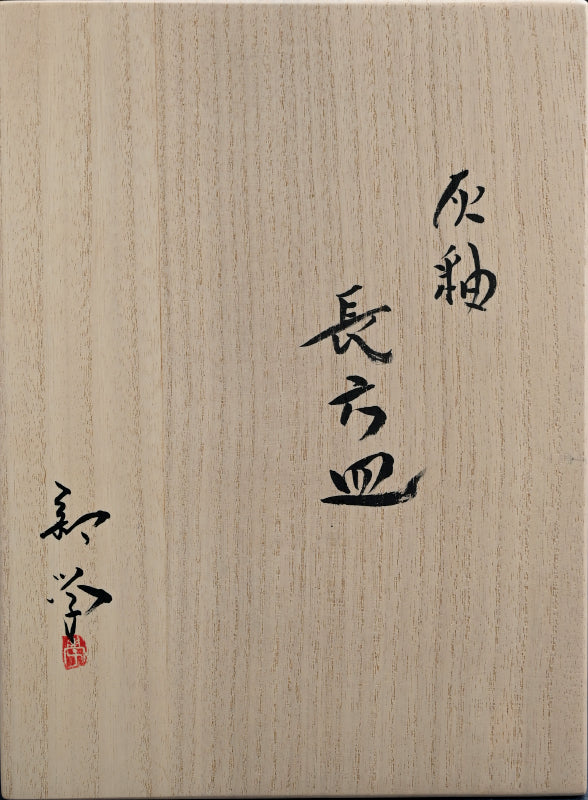 灰釉
長方皿
学